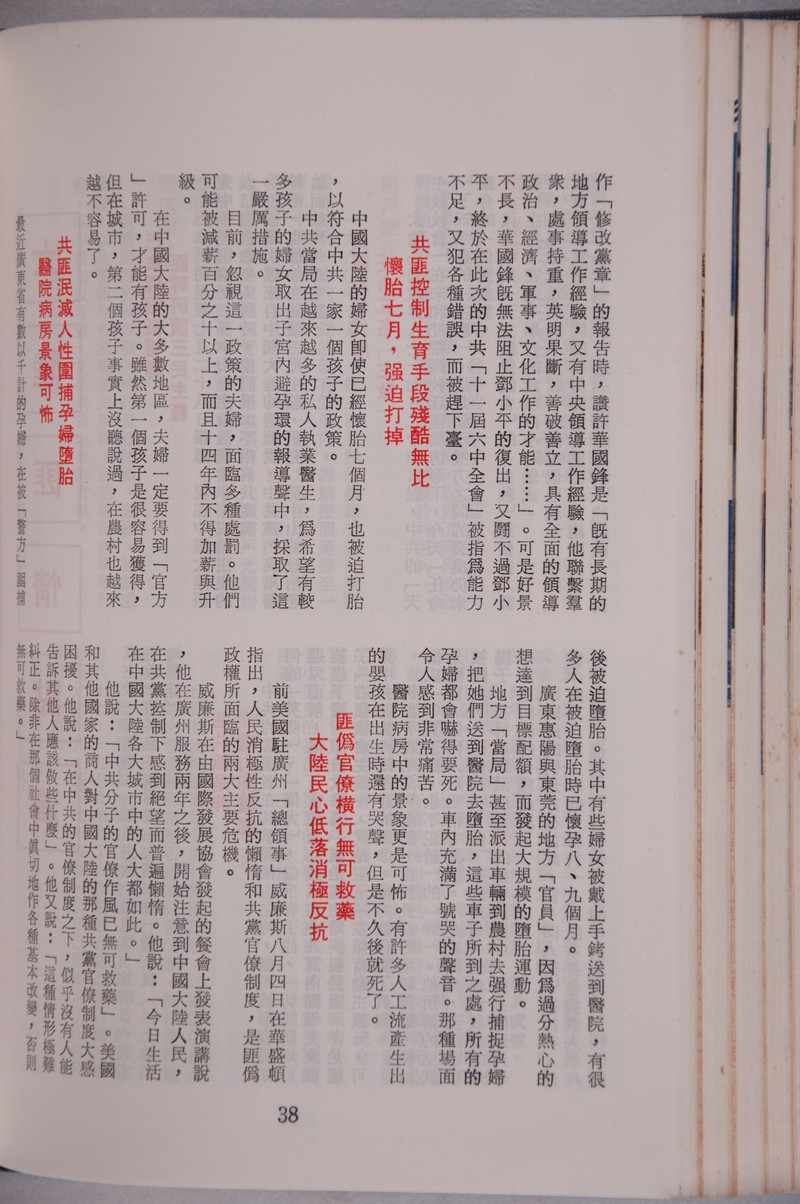 作「修改黨章」的報告時，讚許華國鋒是「既有長期的
地方領導工作經驗，又有中央領導工作經驗，他聯繫羣
衆，處事持重，英明果斷，善破善立，具有全面的領導
政治、經濟、軍事、文化工作的才能……」。可是好景
不長，華國鋒既無法阻止鄧小平的復出，又鬪不過鄧小
平，終於在此次的中共「十一屆六中全會」被指爲能力
不足，又犯各種錯誤，而被趕下臺。
共匪控制生育手段殘酷無比
懷胎七月，强迫打掉
中國大陸的婦女卽使已經懷胎七個月，也被迫打胎
，以符合中共一家一個孩子的政策。
中共當局在越來越多的私人執業醫生，爲希望有較
多孩子的婦女取出子宮內避孕環的報導聲中，採取了這
一嚴厲措施。
目前，忽視這一政策的夫婦，面臨多種處罰。他們
可能被減薪百分之十以上，而且十四年內不得加薪與升
級。
在中國大陸的大多數地區，夫婦一定要得到「官方
」許可，才能有孩子。雖然第一個孩子是很容易獲得，
但在城市，第二個孩子事實上沒聽說過，在農村也越來
越不容易了。
共匪泯滅人性圍捕孕婦墮胎
醫院病房景象可怖
最近廣東省有數以千計的孕婦，在被「警方」圍捕
後被迫墮胎。其中有些婦女被戴上手銬送到醫院，有很
多人在被迫墮胎時已懷孕八、九個月。
廣東惠陽與東莞的地方「官員」，因爲過分熱心的
想達到目標配額，而發起大規模的墮胎運動。
地方「當局」甚至派出車輛到農村去强行捕捉孕婦
，把她們送到醫院去墮胎，這些車子所到之處，所有的
孕婦都會嚇得要死。車內充滿了號哭的聲音。那種場面
令人感到非常痛苦。
醫院病房中的景象更是可怖。有許多人工流產生出
的嬰孩在出生時還有哭聲，但是不久後就死了。
匪僞官僚橫行無可救藥
大陸民心低落消極反抗
前美國駐廣州「總領事」威廉斯八月四日在華盛頓
指出，人民消極性反抗的懶惰和共黨官僚制度，是匪僞
政權所面臨的兩大主要危機。
威廉斯在由國際發展協會發起的餐會上發表演講說
，他在廣州服務兩年之後，開始注意到中國大陸人民，
在共黨控制下感到絕望而普遍懶惰。他說：「今日生活
在中國大陸各大城市中的人大都如此。」
他說：「中共分子的官僚作風已無可救藥」。美國
和其他國家的商人對中國大陸的那種共黨官僚制度大感
困擾。他說：「在中共的官僚制度之下，似乎沒有人能
告訴其他人應該做些什麼」。他又說：「這種情形極難
糾正。除非在那個社會中眞切地作各種基本改變，否則
無可救藥。」
38